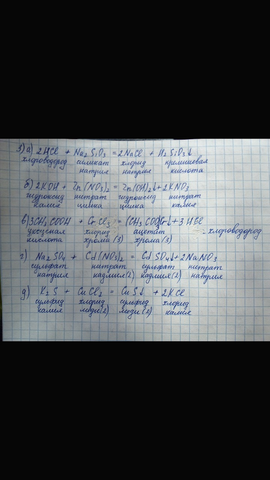 3) а) 2HCl + Na₂SiO₃ = 2NaCl + H₂SiO₃↓
хлороводород силикат хлорид кремниевая
натрия натрия кислота
б) 2KOH + Zn(NO₃)₂ = Zn(OH)₂↓ + 2KNO₃
гидроксид нитрат гидроксид нитрат
калия цинка цинка калия
в) 3CH₃COOH + CrCl₃ = (CH₃COO)₃Cr↓ + 3HCl
уксусная хлорид ацетат - хлороводород
кислота хрома (3) хрома (3)
г) Na₂SO₄ + Cd(NO₃)₂ = CdSO₄↓ + 2NaNO₃
сульфат нитрат сульфат нитрат
натрия кадмия(2) кадмия(2) натрия
д) K₂S + CuCl₂ = CuS↓ + 2KCl
сульфид хлорид сульфид хлорид
калия меди(2) меди(2) калия